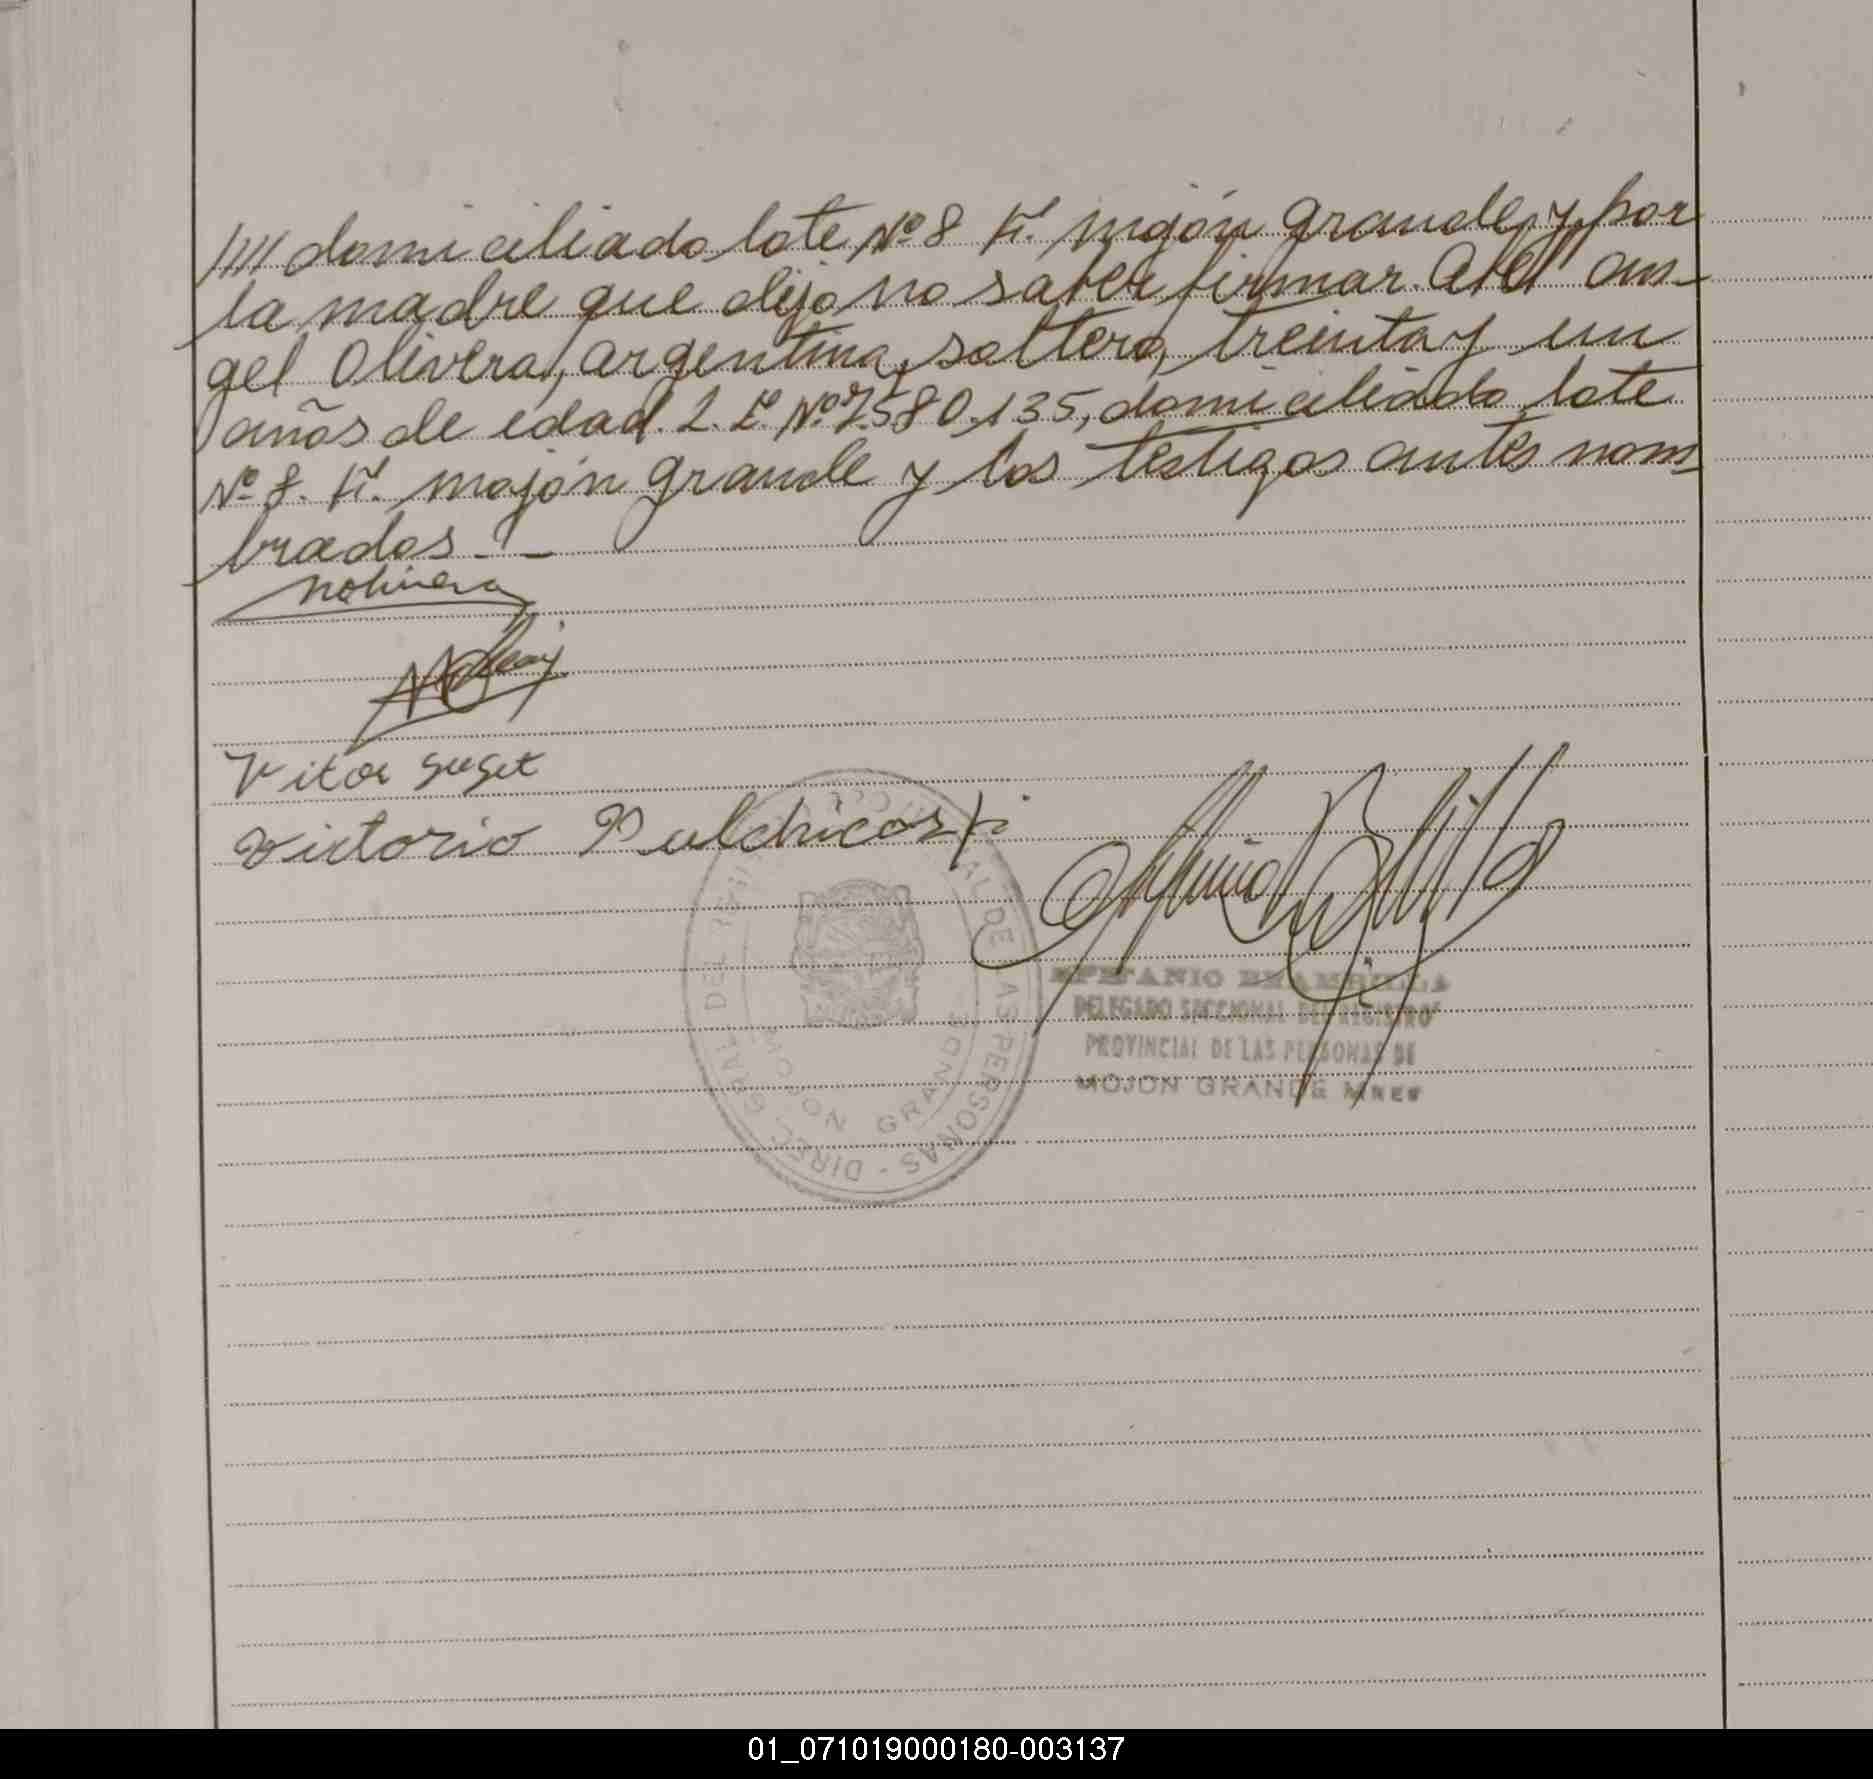 //// domiciliado lote Nº 8 Kº. mojón grande, y por
la madre que dijo no saber firmar. Abel An-
gel Olivera, argentino, soltero, treinta y un
años de edad. L. E. Nº 7.580.135, domiciliado lote
Nº 8. Kº. mojón grande y los testigos antes nom
brados. -
Nolivera
Vitor
Victorio Pulchicoski
EPIFANIO BRAMBILLA
DELEGADO SECCIONAL DEL REGISTRO
PROVINCIAL DE LAS PERSONAS DE
MOJON GRANDE MNES
DIREC. GRAL. DEL
DE LAS PERSONAS -
MOJON GRANDE
01_071019000180-003137